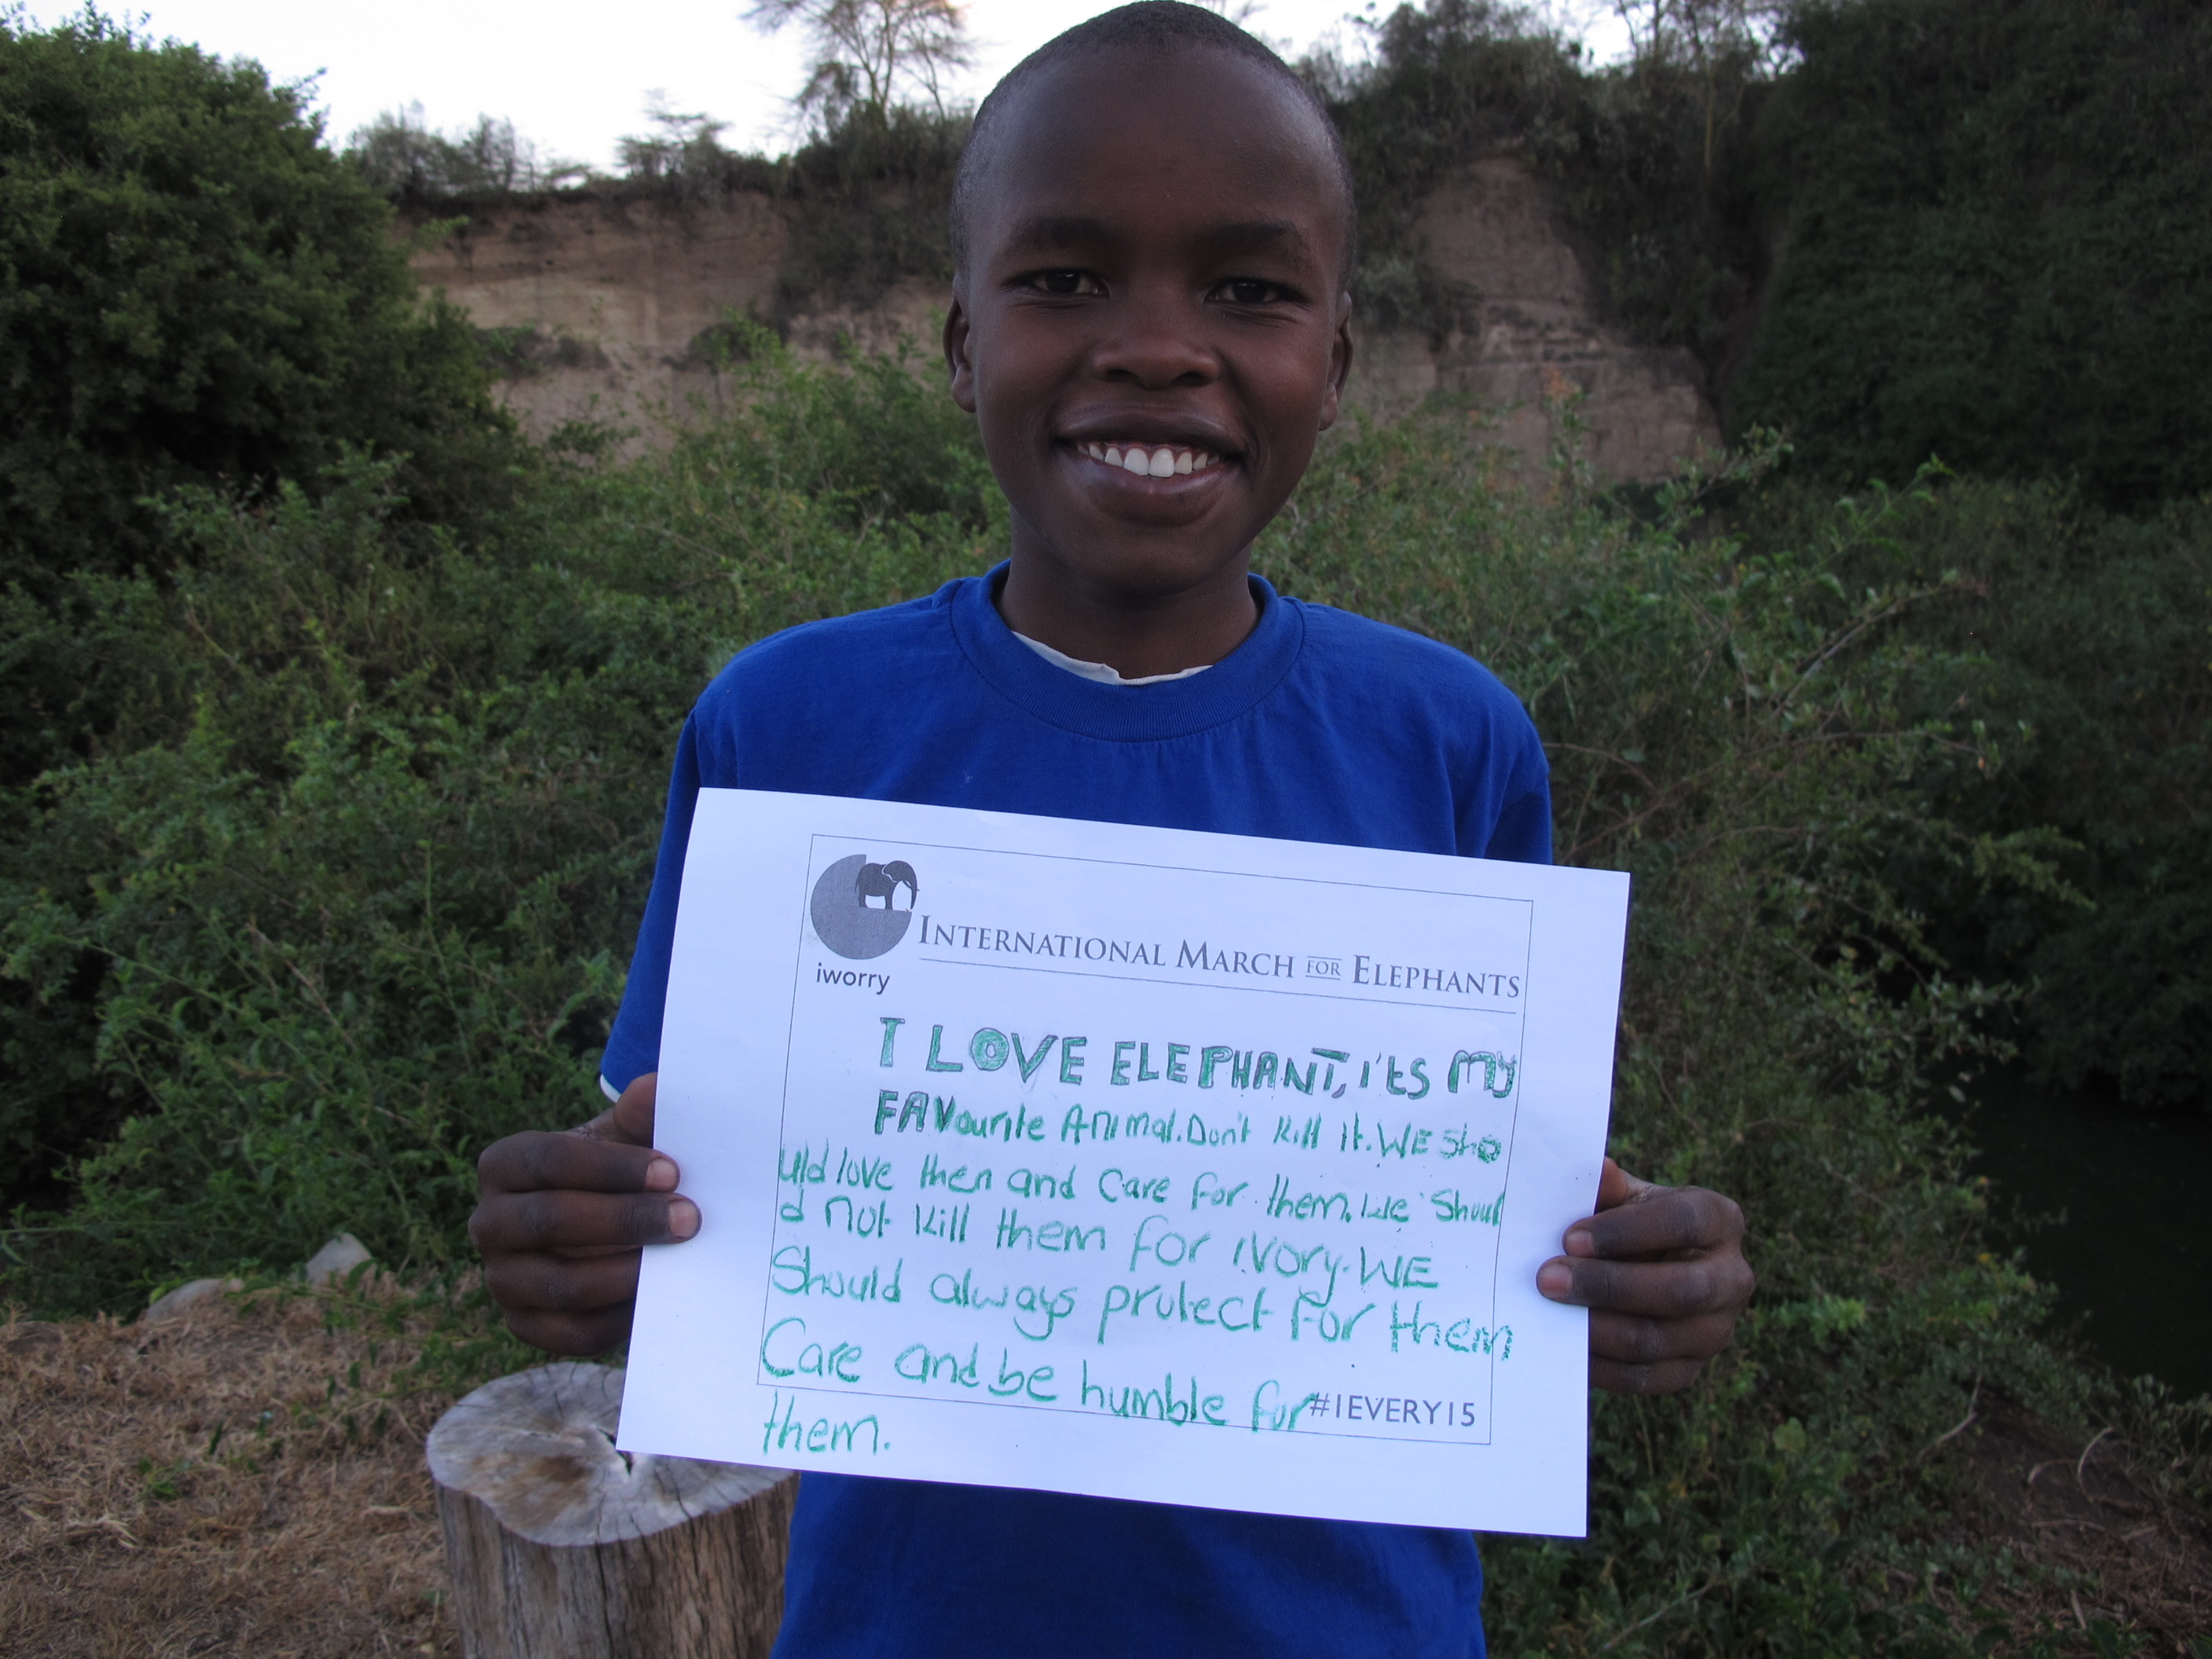 INTERNATIONAL MARCH FOR ELEPHANTS
iworry
I LOVE ELEPHANT, I'ts My
FAVourite Animal. Don't Kill It. WE sho
uld love then and Care for them. We Shoul
d Not Kill them for IVory. WE
Should always protect For them
Care and be humble for
#1EVERY15
them.